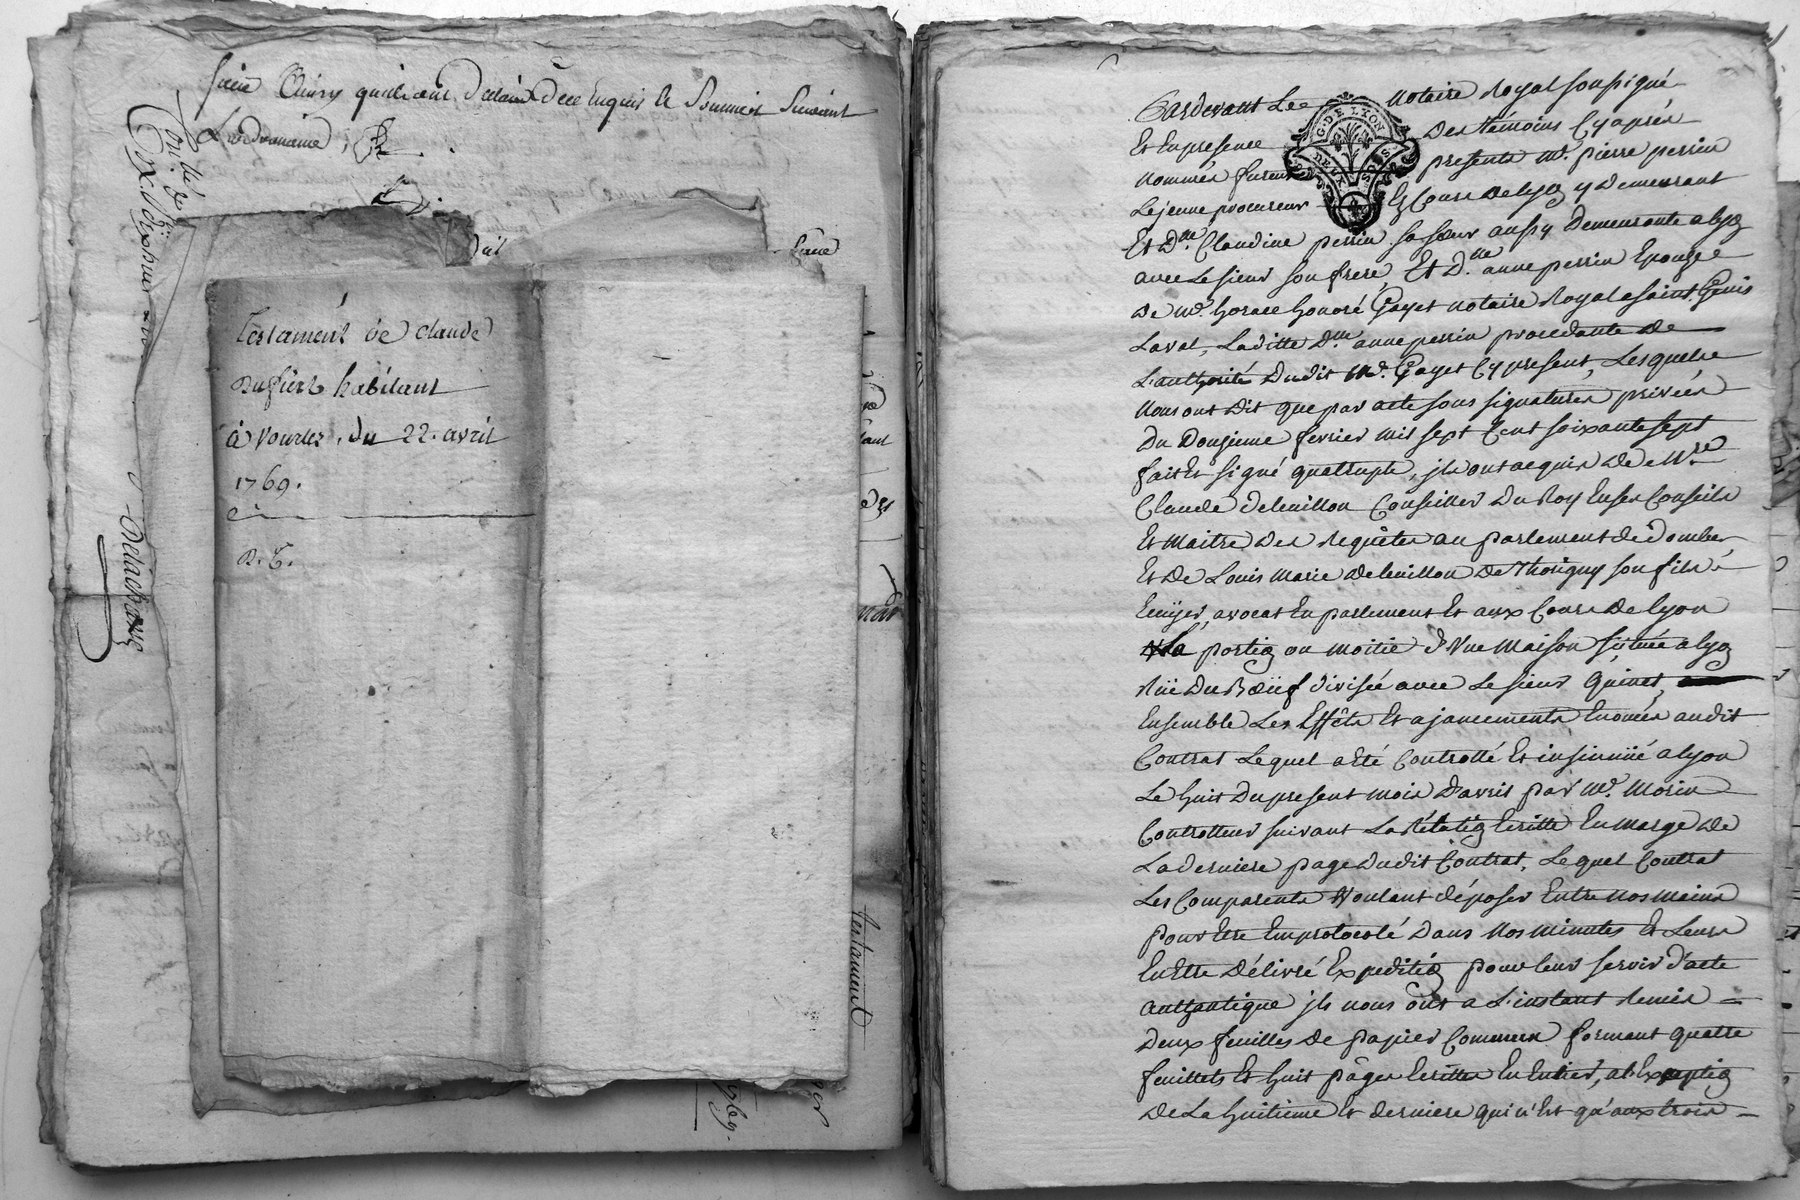 quils ont Declaré de ce Enquis et Sommés Suivant
L'ordonnance
Testament de claude
habitant
à Vourles, du 22. avril
1769.
B. T.
Delacharme
Testament
1769.
G. DE LYON
DEUX SOLS
Pardevant Le notaire Royal soussigné
Et En presence Des temoins Cy aprés
nommés furent presents Mr. pierre perrin
Lejeune procureur Es Cours De Lyon y Demeurant
Et Dlle. Claudine perrin sa sœur aussy Demeurante a Lyon
avec Le sieur son frere, Et Dme. anne perrin Epouze
De Mr. horace honoré Gayet notaire Royal a Saint Genis
Laval, Laditte Dme. anne perrin procedante De
L'authorité Dudit Mr. Gayet Cy present, Lesquels
nous ont Dit que par acte sous signatures privées
Du Douzieme fevrier mil sept Cent soixante sept
fait Et signé quatruple, ils ont acquis De Mre.
Claude Deleuillon Conseiller Du Roy En ses Conseils
Et Maitre Des Requêtes au parlement de Dombes
Et De Louis Marie Deleuillon De Thorigny son fils
Ecuyer, avocat En parlement Et aux Cours De Lyon
La portion ou moitié d'Vne Maison sittuée a Lyon
Rüe Du Bœuf divisée avec Le sieur Quinet,
Ensemble Les Effêts Et ajancements Enoncés audit
Contrat Lequel a été Controllé Et insinué a Lyon
Le huit Du present mois D'avril par Mr. Morin
Controlleur suivant La Rélation Ecritte En Marge De
La derniere page Dudit Contrat, Lequel Contrat
Les Comparents Voulant déposer Entre Nos Mains
pour Etre Emprotocolé Dans Nos Minutes Et Leurs
En Etre Délivré Expedition pour leur servir d'acte
authantique ils nous ont a L'instant Remis
Deux feuilles De papier Commun formant quatre
feuillets Et huit pâges Ecrittes En Entier, a l'Exception
De La huitieme Et derniere qui n'Est qu'aux trois